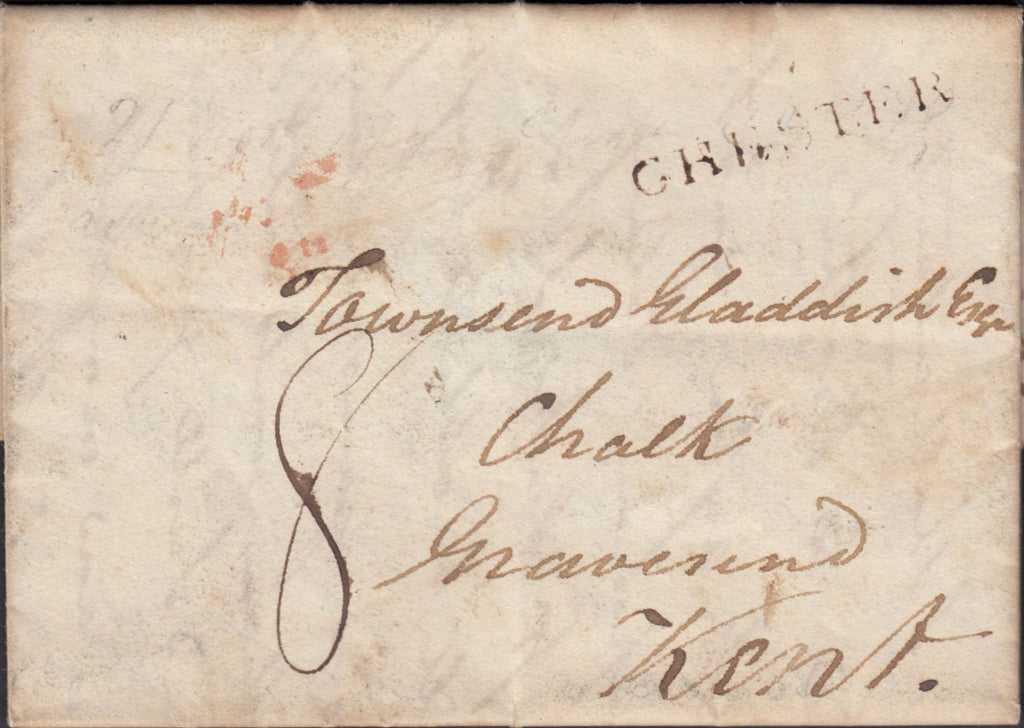 CHESTER
Townsend Gladdish Esqr
Chalk
8
Gravesend
Kent.